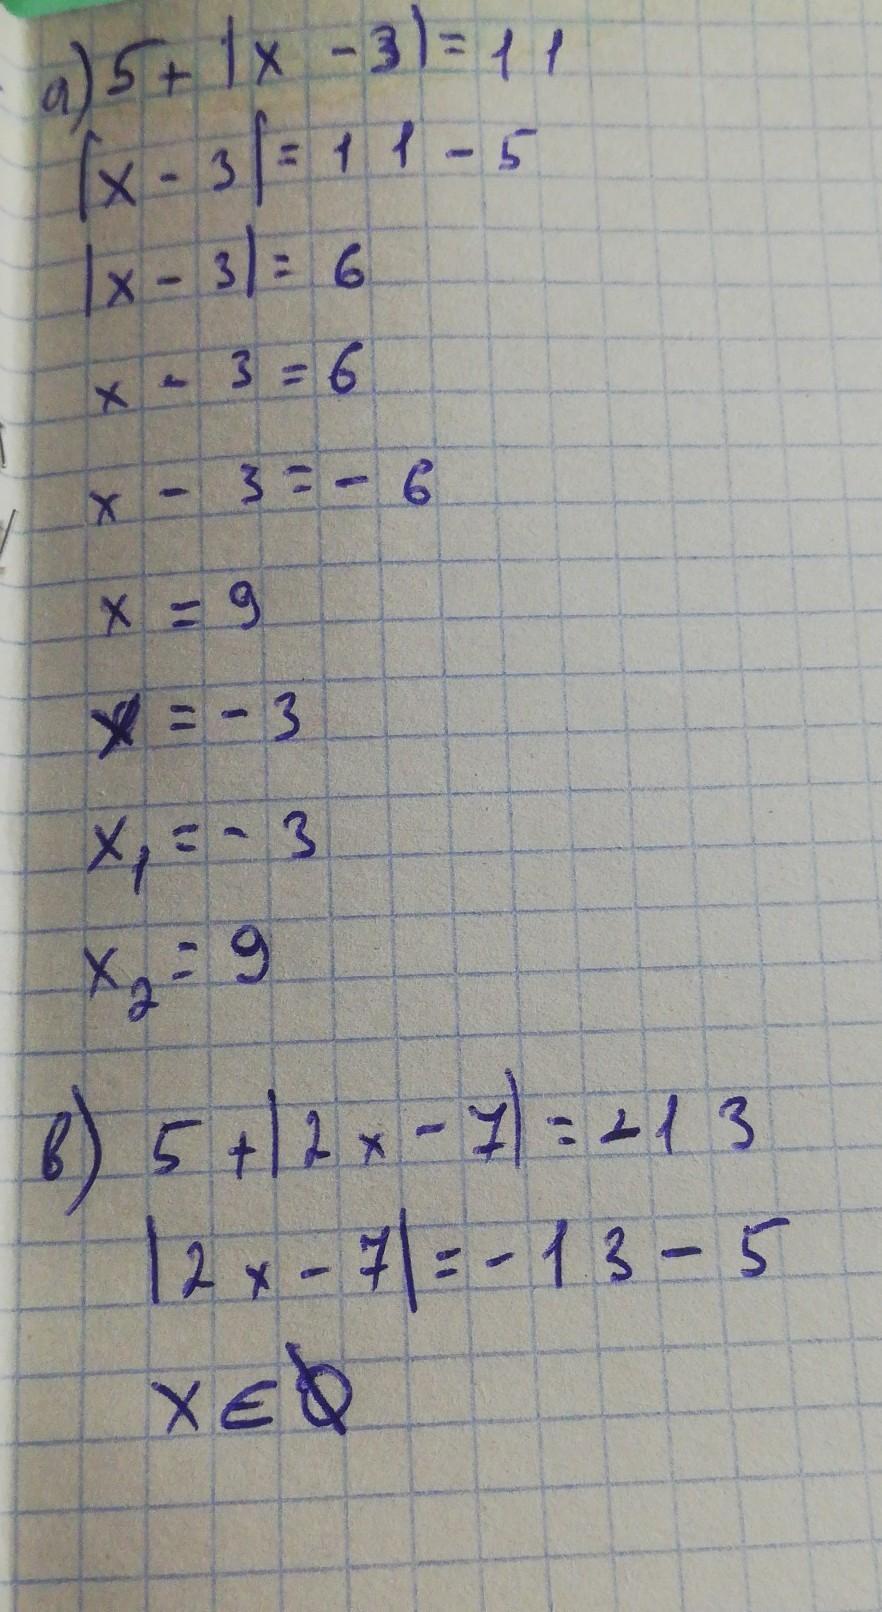 а) 5 + |x - 3| = 11
|x - 3| = 11 - 5
|x - 3| = 6
x - 3 = 6
x - 3 = - 6
x = 9
x = - 3
x₁ = - 3
x₂ = 9
в) 5 + |2x - 7| = -13
|2x - 7| = - 13 - 5
x ∈ ∅